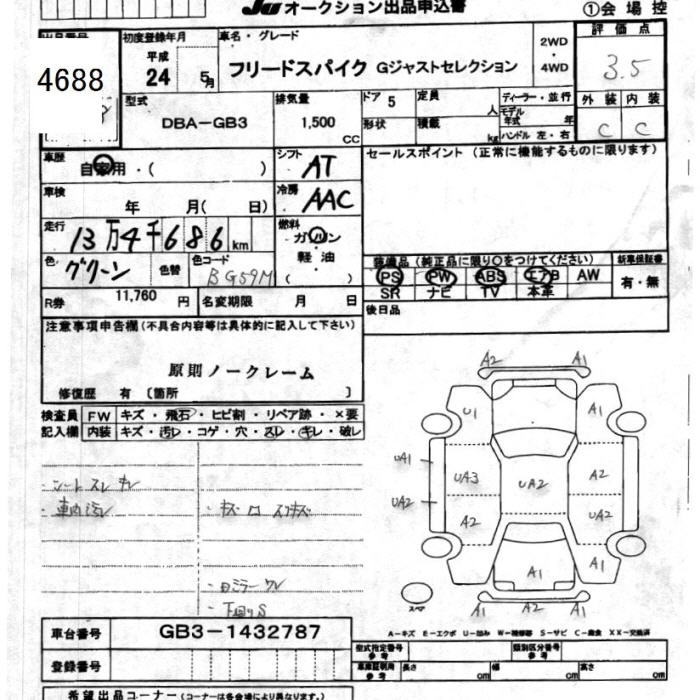 JU オークション出品申込書
①会場控
出品番号
4688
初度登録年月
平成
24 5月
車名・グレード
フリードスパイク Gジャストセレクション
2WD
・
4WD
評価点
3.5
外装 内装
C C
型式
DBA-GB3
排気量
1,500
CC
ドア 5
形状
定員 人
積載 kg
ディーラー・並行
モデル
年式 年
ハンドル 左・右
車歴
自家用・( )
シフト
AT
セールスポイント (正常に機能するものに限ります)
車検
年 月( 日)
冷房
AAC
走行
13万4千686km
燃料
ガソリン
軽油
( )
色
グリーン
色替
色コード
BG59M
装備品(純正品に限り○をつけてください)
新車保証書
PS PW ABS エアB AW
SR ナビ TV 本革
有・無
R券 11,760 円
名変期限 月 日
後日品
注意事項申告欄(不具合内容等は具体的に記入して下さい)
原則ノークレーム
修復歴 有 〔箇所 〕
検査員
記入欄
FW キズ・飛石・ヒビ割・リペア跡・×要
内装 キズ・汚レ・コゲ・穴・スレ・キレ・破レ
シートスレ キレ
車内汚
下回りS
A2 A1
U1 A1
UA1
UA3 UA2 A2
UA2
A2 UA2
A1 A1
A1 A2 A1
スペア
A-キズ E-エクボ U-凹み W-補修跡 S-サビ C-腐食 XX-交換済
車台番号
GB3-1432787
登録番号
型式指定番号
参考
類別区分番号
参考
車庫証明用
参考
長さ cm
幅 cm
高さ cm
希望出品コーナー(コーナーは各会場により異なります。)